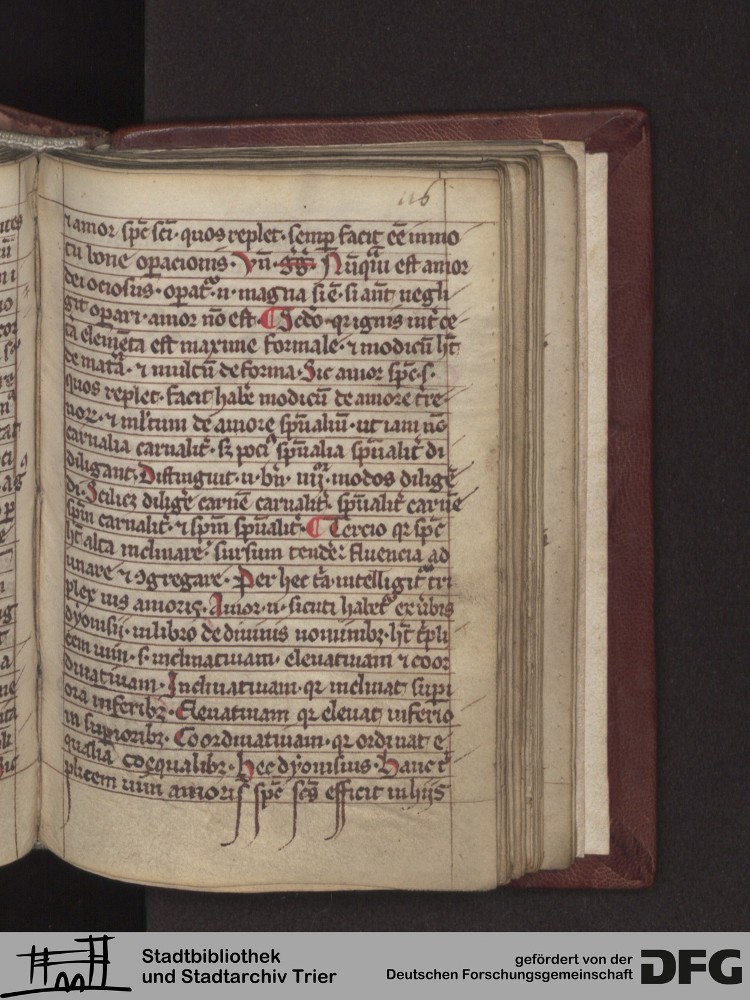 116
⁊ amor sp̄c sc̄i · quos replet · semp facit ēē in mo
tu bone opacionis · Vn̄ · Nūq̄ui est amor
dei ociosus · opat᷑ · n · magna si ē · si aūt negli
git opari · amor nō est · ¶ Scd̄o · qr ignis int̄ ce
ta elemēta est maxime formale · ⁊ modicū hꝫ
de mat̄a · ⁊ multū de forma · Sic amor sp̄c · s ·
quos replet · facit hab̄e modicū de amore t̄re
noꝝ · ⁊ ml̄tum de amore sp̄ualiū · ut iam nō
carnalia carnalit᷑ · sꝫ poci᷒ sp̄ualia sp̄ualit᷑ di
diligant · Distinguit · n · bn̄ · iiij · modos diligē
di · Scilicꝫ dilige᷑ carnē carnalit᷑ · sp̄ualit᷑ carnē
sp̄m carnalit᷑ · ⁊ sp̄m sp̄ualit᷑ · ¶ Tercio qr sp̄c
hꝫ alta inclinare · sursum tende᷑ · fluencia ad
unare ⁊ ꝯgregare · Per hec t̄a intelligit᷑ tri
plex uis amoris · Amor · n · sicuti habet᷑ ex u̓bis
dyonisij · in libro de diuinis nominibꝫ · hꝫ t̓pli
cem uim · s · inclinatiuam · eleuatiuam ⁊ coor
dinatiuam · Inclinatiuam · qr inclinat supi
ora inferibꝫ · Eleuatiuam qr eleuat inferio
a supioribꝫ · Coordinatiuam · qr ordinat e
qualia coequalibꝫ · hec dyonisius · hanc t̓
plicem uim amoris sp̄c sc̄s efficit in hijs
Stadtbibliothek
und Stadtarchiv Trier
gefördert von der
Deutschen Forschungsgemeinschaft
DFG